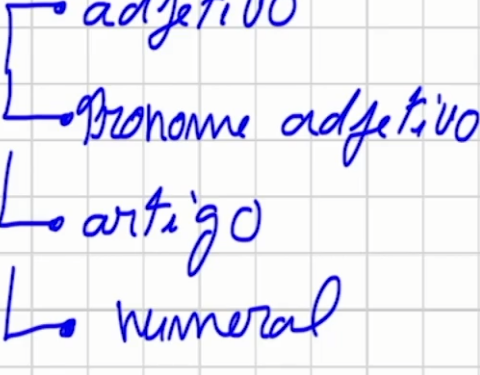 adjetivo
Pronome adjetivo
artigo
numeral